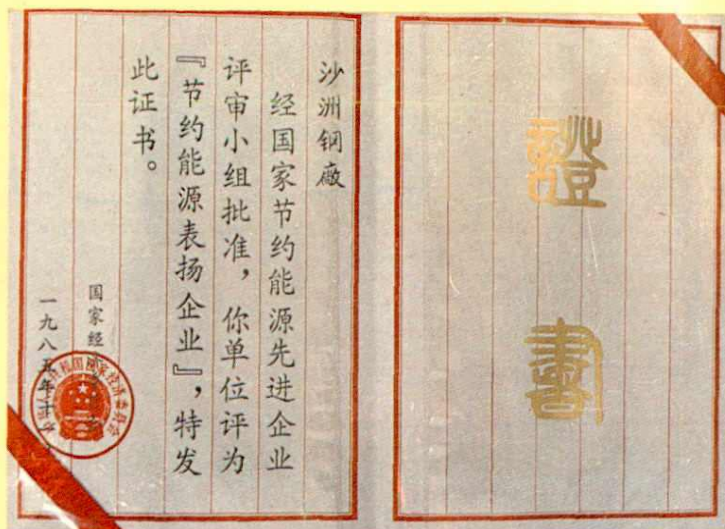 證書
沙洲钢廠
经国家节约能源先进企业
评审小组批准，你单位评为
『节约能源表扬企业』，特发
此证书。
国家经
一九八五年十